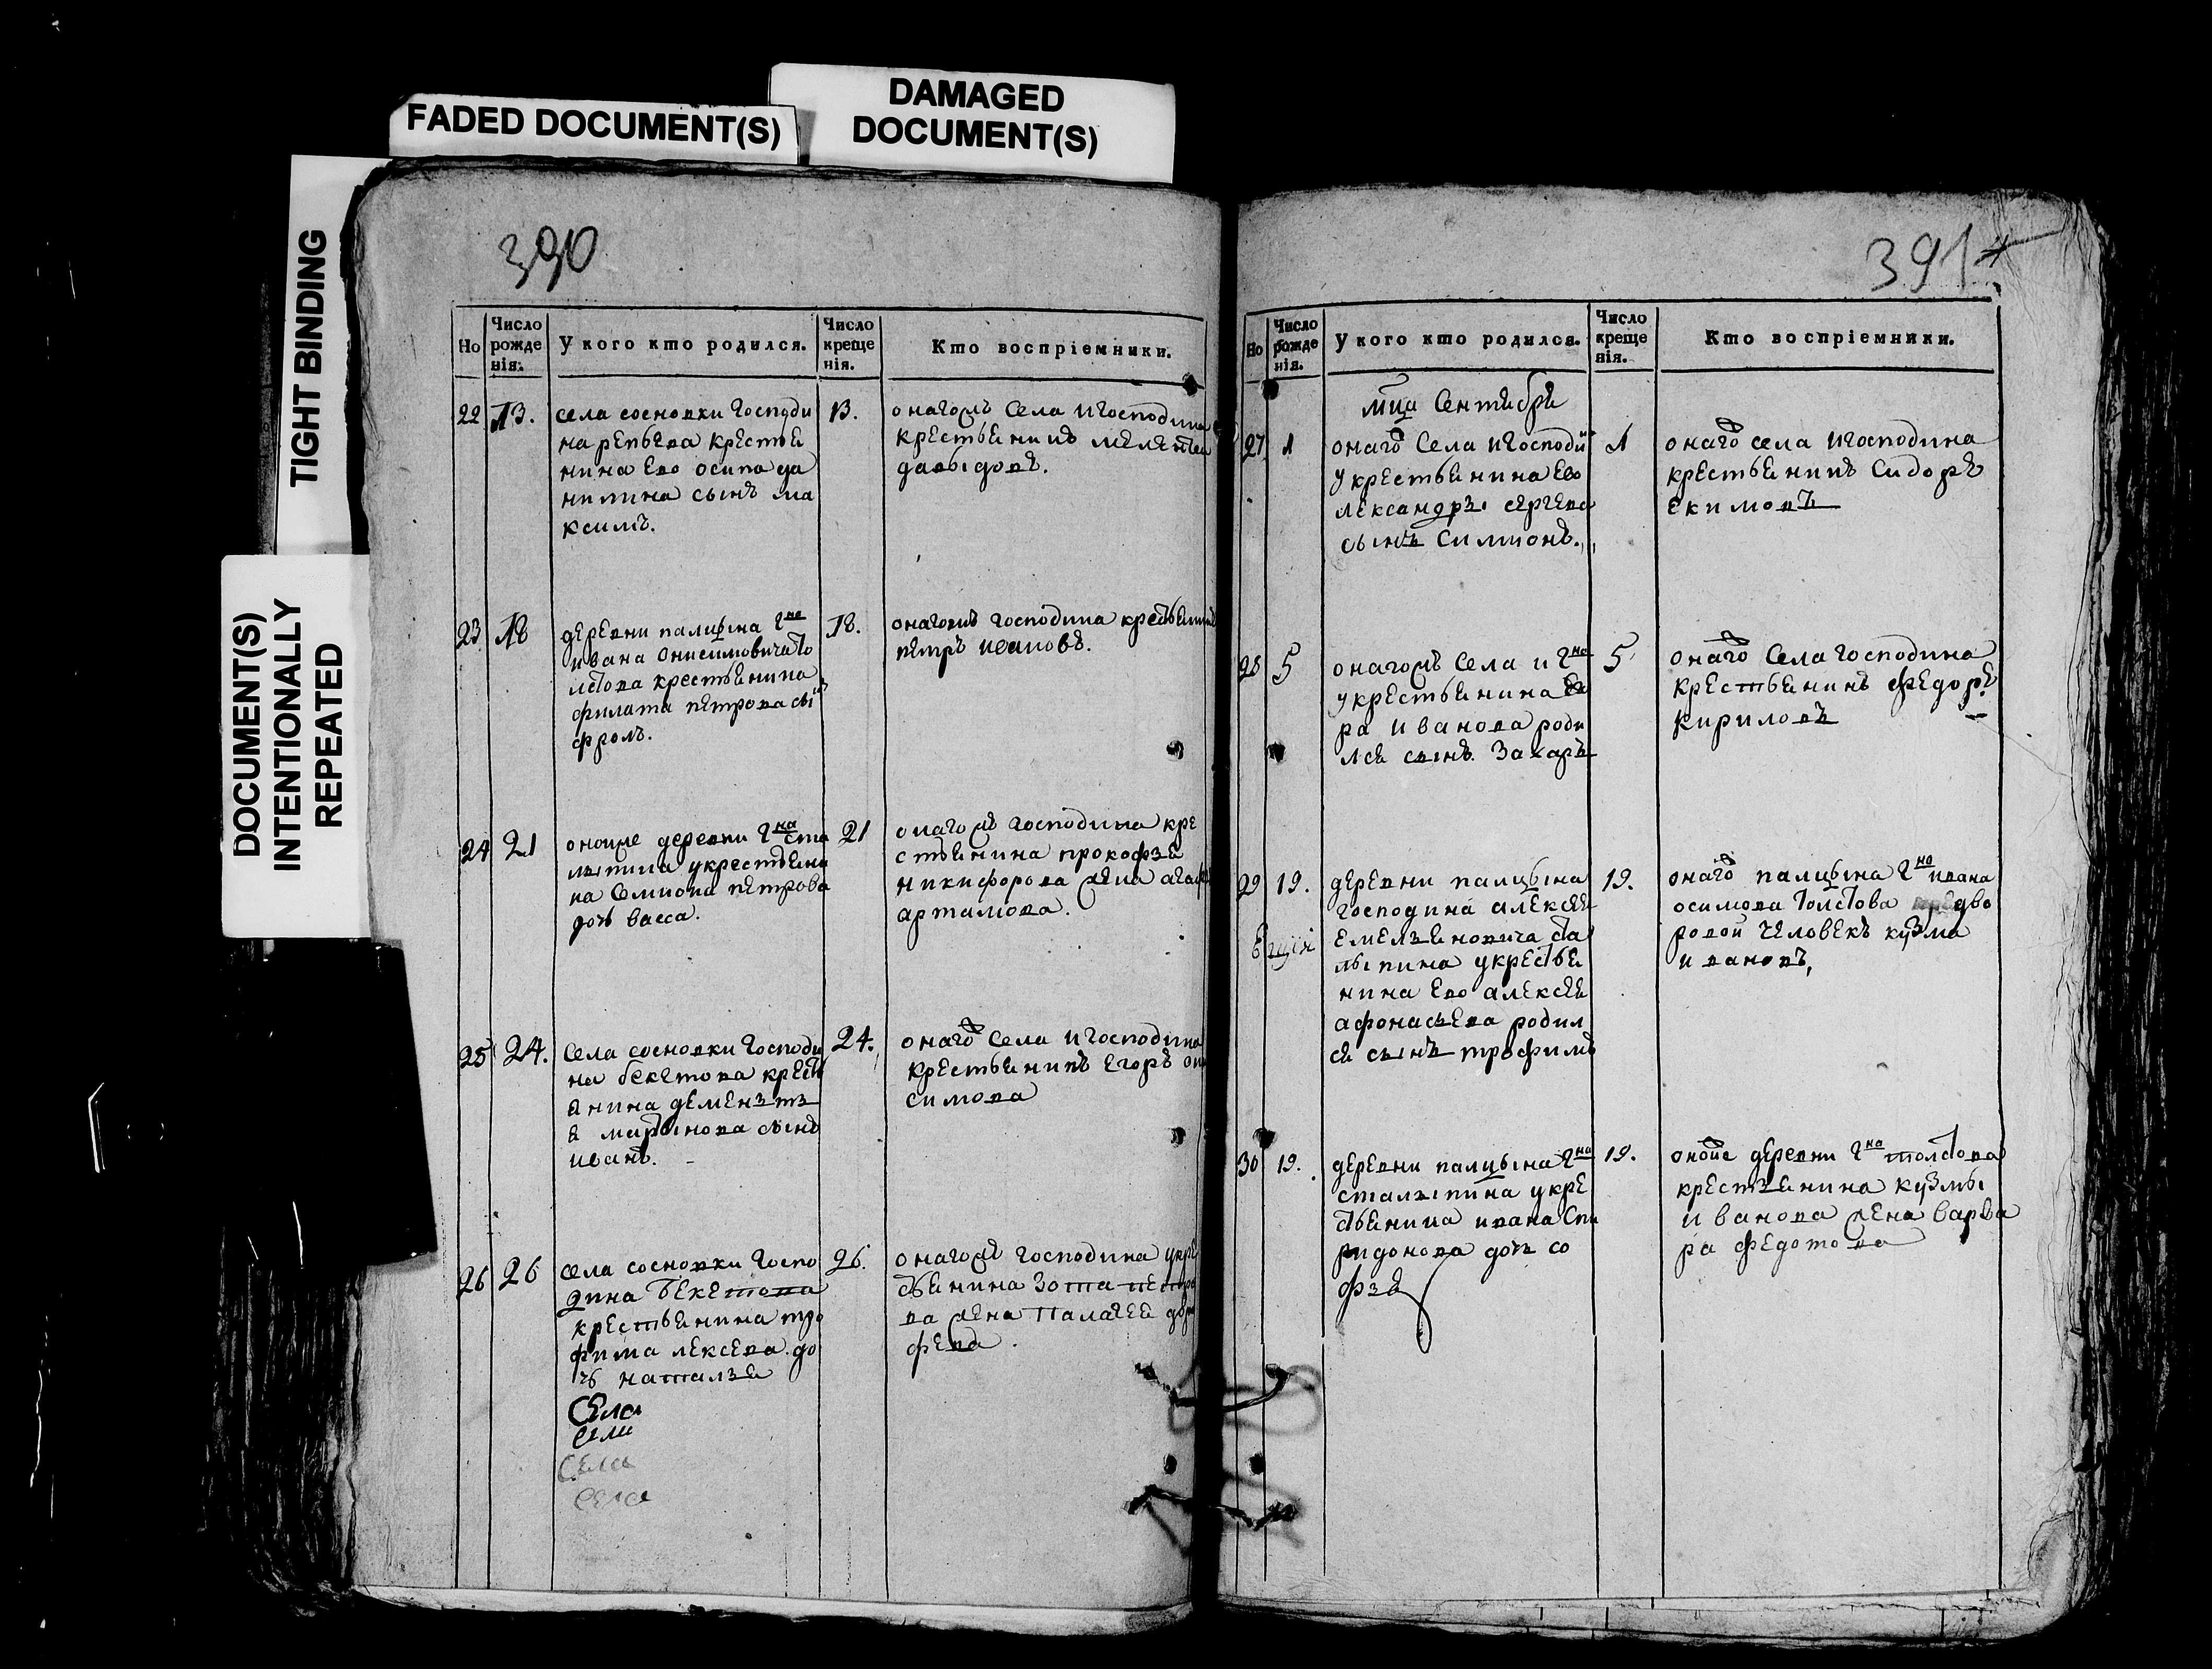 FADED DOCUMENT(S)
DAMAGED
DOCUMENT(S)
TIGHT BINDING
DOCUMENT(S)
INTENTIONALLY
REPEATED
390
Но
Число
рожде
нія.
У кого кто родился.
Число
креще
нія.
Кто воспріемники.
22
13.
села сосновки Господи
на репьева крестья
нина Ево осипа да
нилина сынъ ма
ксимъ.
13.
онагожъ Села И Господина
крестьянинъ
давыдовъ.
23
18
деревни палицына гна
ивана Онисимовича То
лстова крестьянина
филата петрова сы
фролъ.
18.
онагожъ господина крестьянинъ
петръ ивановъ.
24
21
оноиже деревни гна ста
лыпина у крестьяни
на Семиона петрова
дочь васса.
21
онагожъ господина кре
стьянина прокофья
никифорова жена
артамова.
25
24.
Села сосновки Господи
на бекетова крестья
янина деменьть
я мартынова сынъ
иванъ.
24.
онаго Села И господина
крестьянинъ Егоръ они
симова
26
26
села сосновки Госпо
дина бекетова
крестьянина тро
фима лексева до
чь наталья
Села
Сели
Села
Села
26.
онагожъ господина у кре
стьянина Зота петро
ва жена Палагея доро
фева.
391
Но
Число
рожде
нія.
У кого кто родился.
Число
креще
нія.
Кто воспріемники.
мца Сентября
27
1
онаго Села И Господи
у крестьянина Ево
лександры сергева
сынъ Симионъ.
1
онаго села И господина
крестьянинъ Сидоръ
екимовъ
28
5
онагожъ Села и гна
у крестьянина
ра Иванова роди
лся сынъ Захаръ
5
онаго Села господина
крестьянинъ федоръ
Кириловъ
29
19.
деревни палицына
господина алексея
Емельяновича ста
лыпина у крестья
нина Ево алексея
афонасьева родил
ся сынъ трофимъ
19.
онаго палицына гна ивана
осимова Толстова дво
ровой человекъ кузма
ивановъ,
30
19.
деревни палицына гна
сталыпина у кре
стьянина ивана Спи
ридонова дочь со
фья
19.
оное деревни гна толстова
крестьянина кузмы
Иванова жена варва
ра федотова